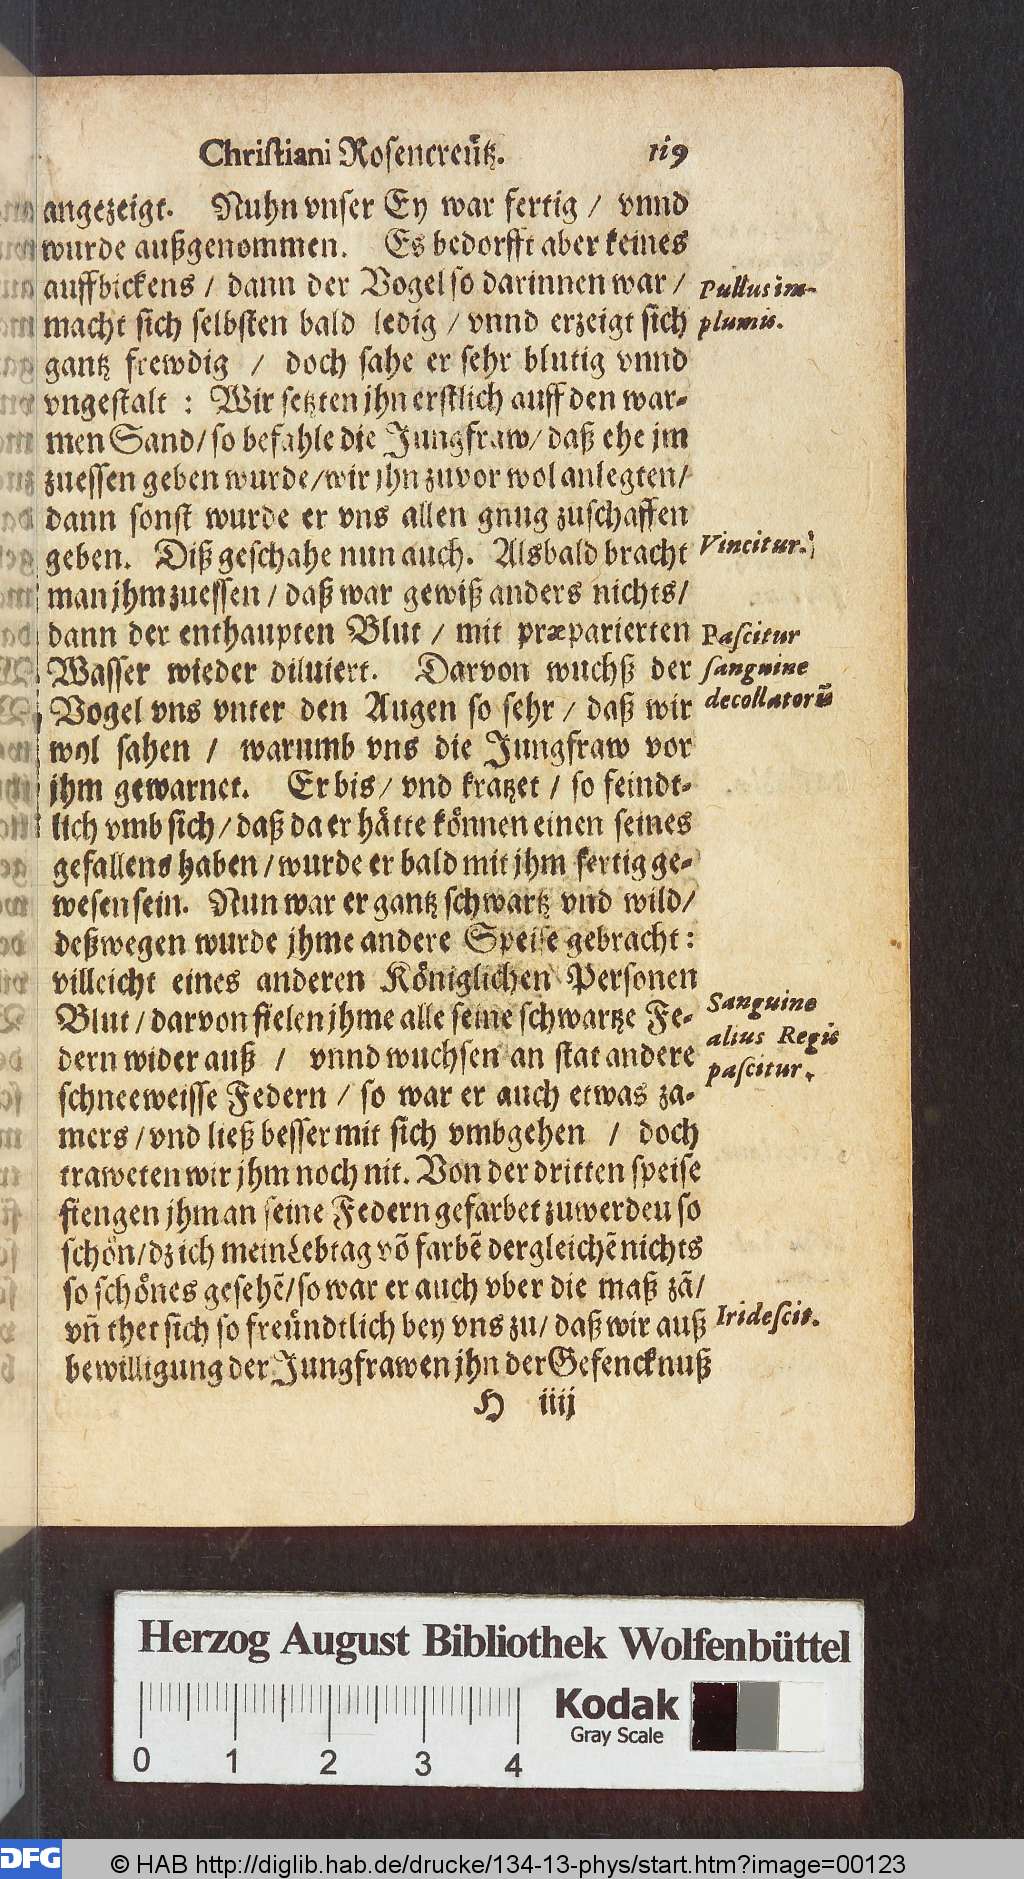 Chriſtiani Roſencreütz. 119
angezeigt. Nuhn vnſer Ey war fertig / vnnd
wurde außgenommen. Es bedorfft aber keines
auffbickens / dann der Vogel ſo darinnen war /
Pullus im-
macht ſich ſelbſten bald ledig / vnnd erzeigt ſich
plumis.
gantz frewdig / doch ſahe er ſehr blutig vnnd
vngeſtalt : Wir ſetzten jhn erſtlich auff den war-
men Sand / ſo befahle die Jungfraw / daß ehe jm
zueſſen geben wurde / wir jhn zuvor wol anlegten /
dann ſonſt wurde er vns allen gnug zuſchaffen
geben. Diß geſchahe nun auch. Alsbald bracht
Vincitur.
man jhm zueſſen / daß war gewiß anders nichts /
dann der enthaupten Blut / mit præparierten
Paſcitur
Waſſer wieder diluiert. Darvon wuchß der
ſanguine
Vogel vns vnter den Augen ſo ſehr / daß wir
decollatorũ
wol ſahen / warumb vns die Jungfraw vor
jhm gewarnet. Er bis / vnd kratzet / ſo feindt-
lich vmb ſich / daß da er hätte können einen ſeines
gefallens haben / wurde er bald mit jhm fertig ge-
weſen ſein. Nun war er gantz ſchwartz vnd wild /
deßwegen wurde jhme andere Speiſe gebracht :
villeicht eines anderen Königlichen Perſonen
Blut / darvon fielen jhme alle ſeine ſchwartze Fe-
Sanguine
alius Regis
dern wider auß / vnnd wuchſen an ſtat andere
paſcitur.
ſchneeweiſſe Federn / ſo war er auch etwas za-
mers / vnd ließ beſſer mit ſich vmbgehen / doch
traweten wir jhm noch nit. Von der dritten ſpeiſe
fiengen jhm an ſeine Federn gefarbet zuwerdeu ſo
ſchön / dz ich mein Lebtag võ farbẽ dergleichẽ nichts
ſo ſchönes geſehẽ / ſo war er auch vber die maß zã /
vñ thet ſich ſo freündtlich bey vns zu / daß wir auß
Irideſcit.
bewilligung der Jungfrawen jhn der Gefencknuß
H iiij
Herzog August Bibliothek Wolfenbüttel
Kodak
Gray Scale
0 1 2 3 4
DFG
© HAB http://diglib.hab.de/drucke/134-13-phys/start.htm?image=00123